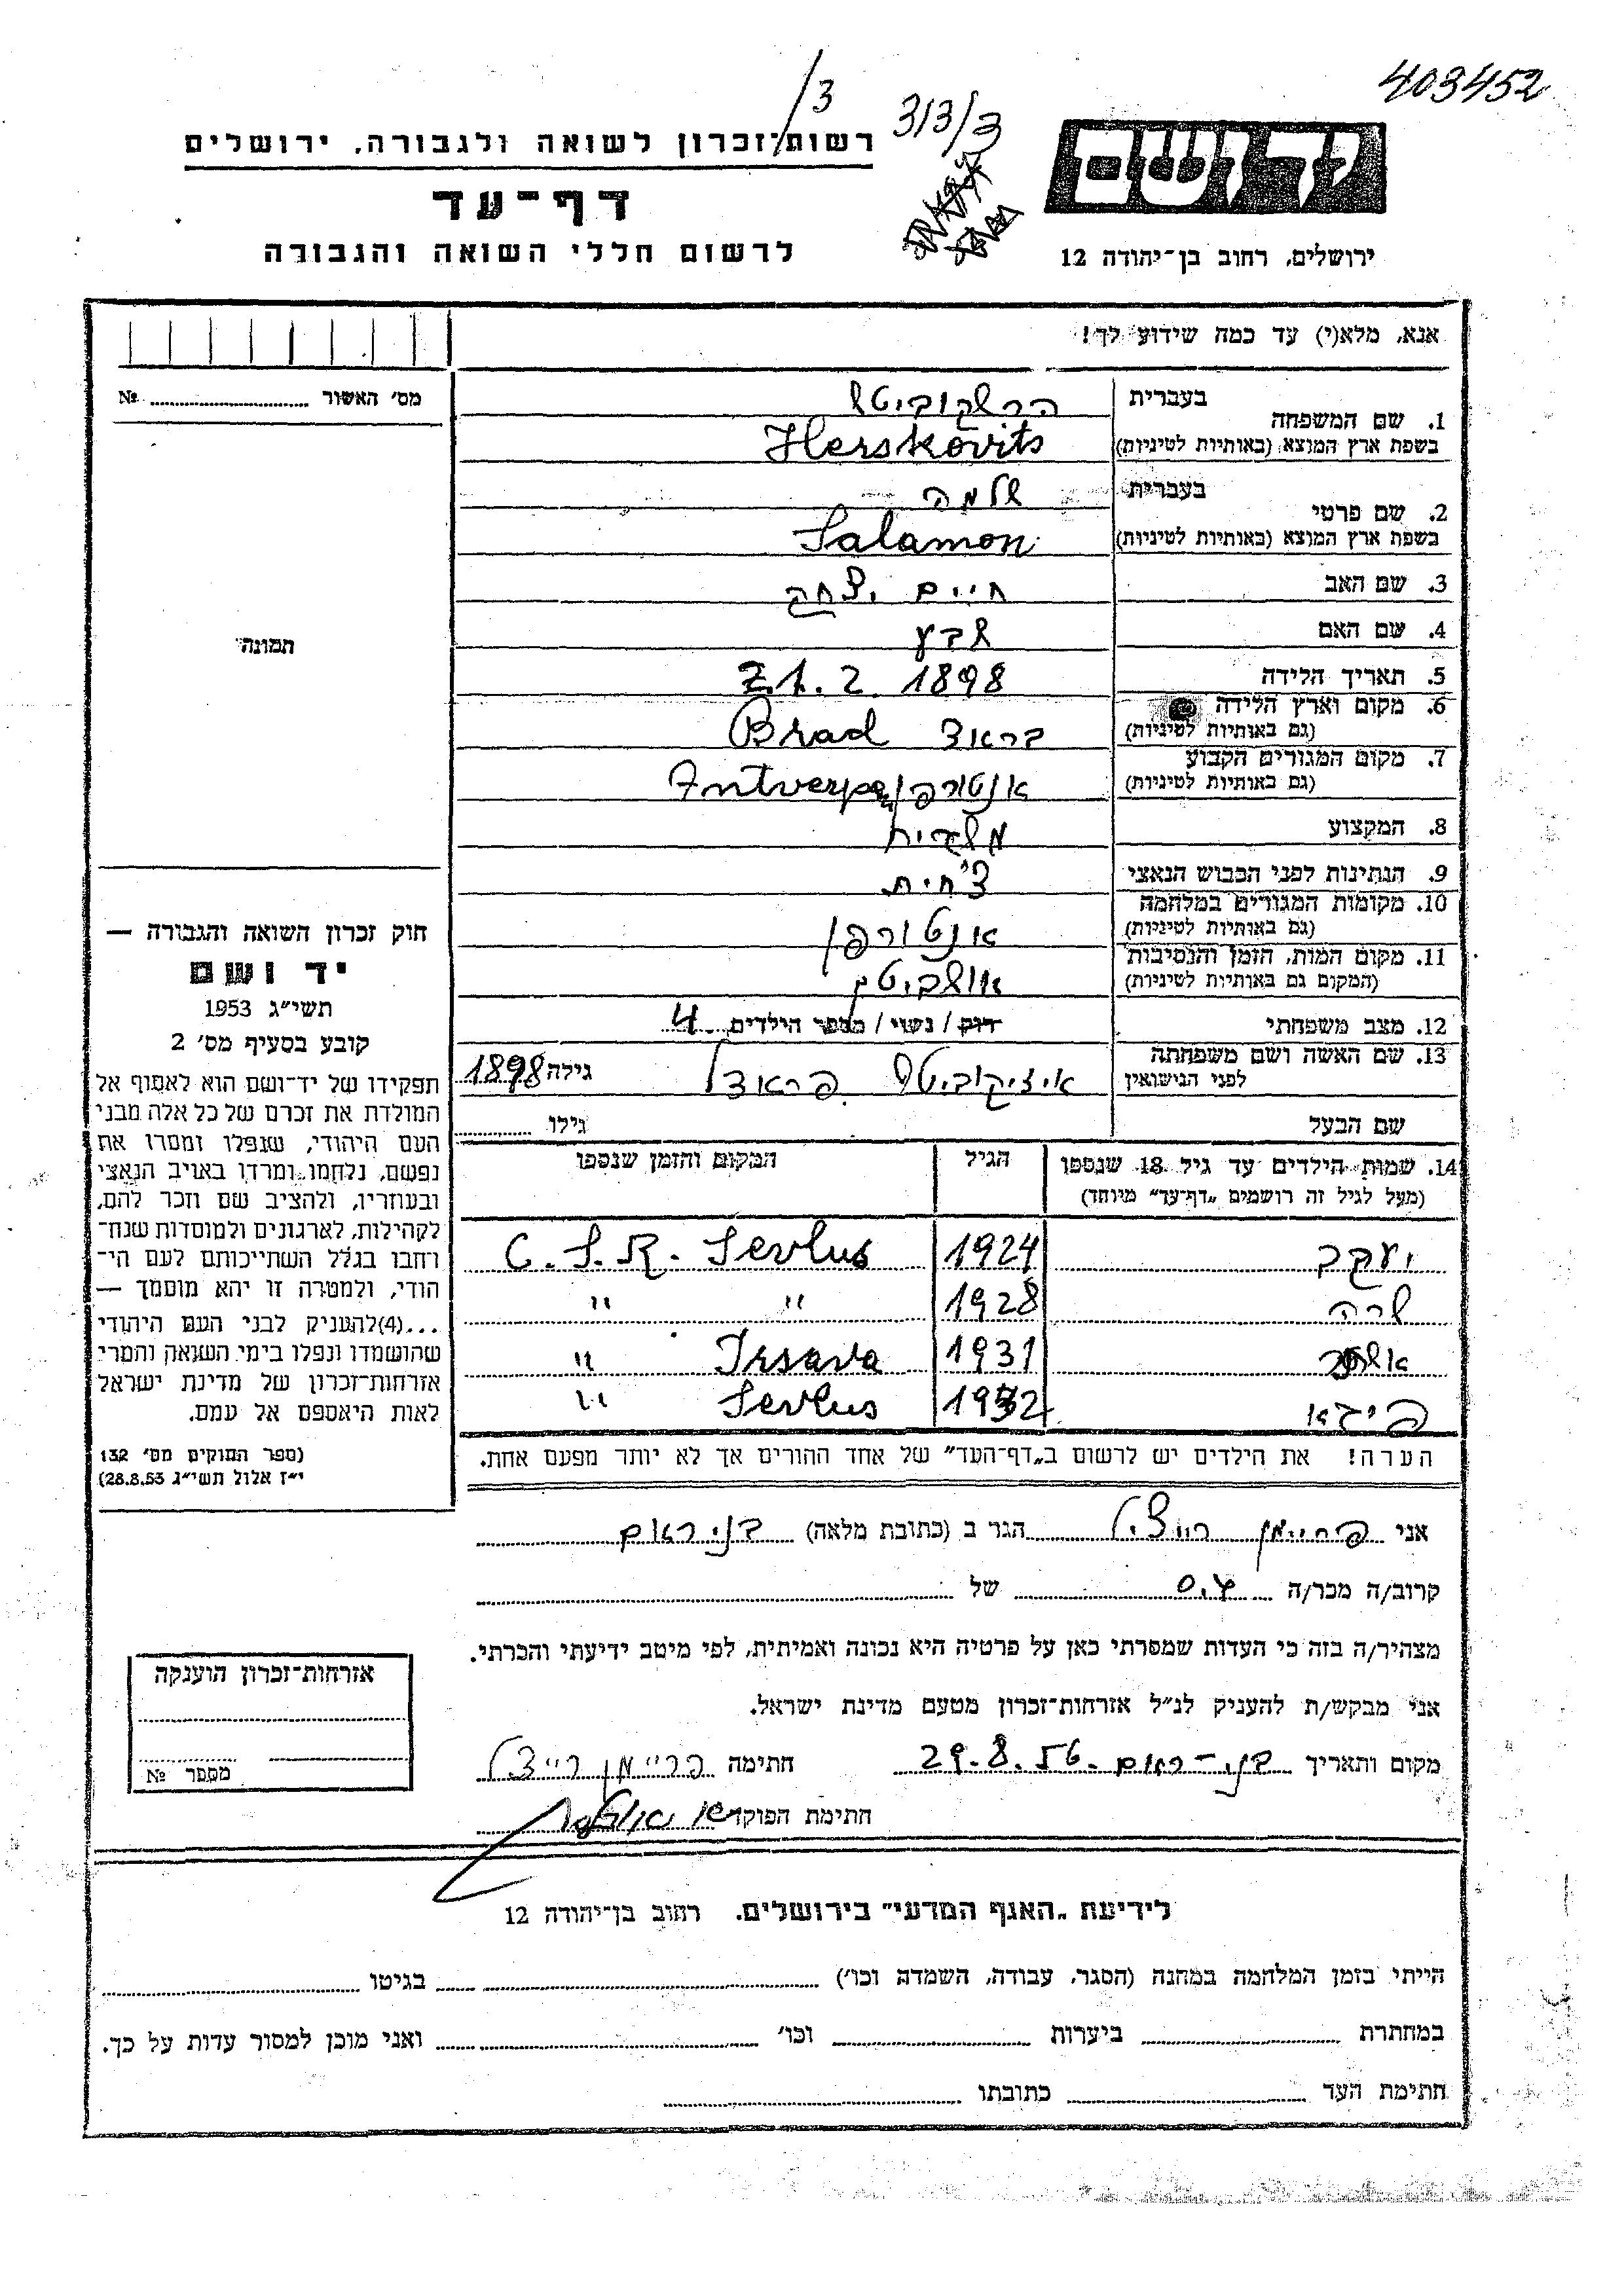 403452
/3
313/3
רשות־זכרון לשואה ולגבורה, ירושלים
דף־עד
לרשום חללי השואה והגבורה
יד ושם
ירושלים, רחוב בן־יהודה 12
אנא, מלא(י) עד כמה שידוע לך!
מס׳ האשור № 
1. שם המשפחה בעברית הרשקוביטש
בשפת ארץ המוצא (באותיות לטיניות) Herskovits
2. שם פרטי בעברית שלמה
בשפת ארץ המוצא (באותיות לטיניות) Salamon
3. שם האב חיים יצחק
4. שם האם שבע
5. תאריך הלידה 21. 2. 1898
6. מקום וארץ הלידה (גם באותיות לטיניות) בראד Brad
7. מקום המגורים הקבוע (גם באותיות לטיניות) אנטורפן Antverpen
8. המקצוע משגיח
9. הנתינות לפני הכבוש הנאצי צ'חית
10. מקומות המגורים במלחמה (גם באותיות לטיניות) אנטורפן
11. מקום המות, הזמן והנסיבות (המקום גם באותיות לטיניות)
12. מצב משפחתי רוק / נשוי / מספר הילדים 4
13. שם האשה ושם משפחתה לפני הנישואין איציקוביטש גילה 1898
שם הבעל גילו
14. שמות הילדים עד גיל 18 שנספו הגיל המקום והזמן שנספו
(מעל לגיל זה רושמים „דף־עד” מיוחד)
יעקב 1924 C. S. R. Sevlus
שרה 1928 " "
1931 Irsava "
1932 Sevlus "
הערה! את הילדים יש לרשום ב„דף־העד” של אחד ההורים אך לא יותר מפעם אחת.
תמונה
חוק זכרון השואה והגבורה —
יד ושם
תשי״ג 1953
קובע בסעיף מס׳ 2
תפקידו של יד־ושם הוא לאסוף אל
המולדת את זכרם של כל אלה מבני
העם היהודי, שנפלו ומסרו את
נפשם, נלחמו ומרדו באויב הנאצי
ובעוזריו, ולהציב שם וזכר להם,
לקהילות, לארגונים ולמוסדות שנח־
רבו בגלל השתייכותם לעם הי־
הודי, ולמטרה זו יהא מוסמך —
...(4)להעניק לבני העם היהודי
שהושמדו ונפלו בימי השואה והמרי
אזרחות־זכרון של מדינת ישראל
לאות היאספם אל עמם.
(ספר החוקים מס׳ 132
י״ז אלול תשי״ג 28.8.53)
אני פריימן רייצל הגר ב (כתובת מלאה) בני ראם
קרוב/ה מכר/ה של
מצהיר/ה בזה כי העדות שמסרתי כאן על פרטיה היא נכונה ואמיתית, לפי מיטב ידיעתי והכרתי.
אני מבקש/ת להעניק לנ״ל אזרחות־זכרון מטעם מדינת ישראל.
מקום ותאריך בני-ראם 29.8.56 חתימה פריימן רייצל
חתימת הפוקד
אזרחות־זכרון הוענקה
מספר №
לידיעת „האגף המדעי” בירושלים, רחוב בן־יהודה 12
הייתי בזמן המלחמה במחנה (הסגר, עבודה, השמדה וכו׳) בגיטו
במחתרת ביערות וכו׳ ואני מוכן למסור עדות על כך.
חתימת העד כתובתו